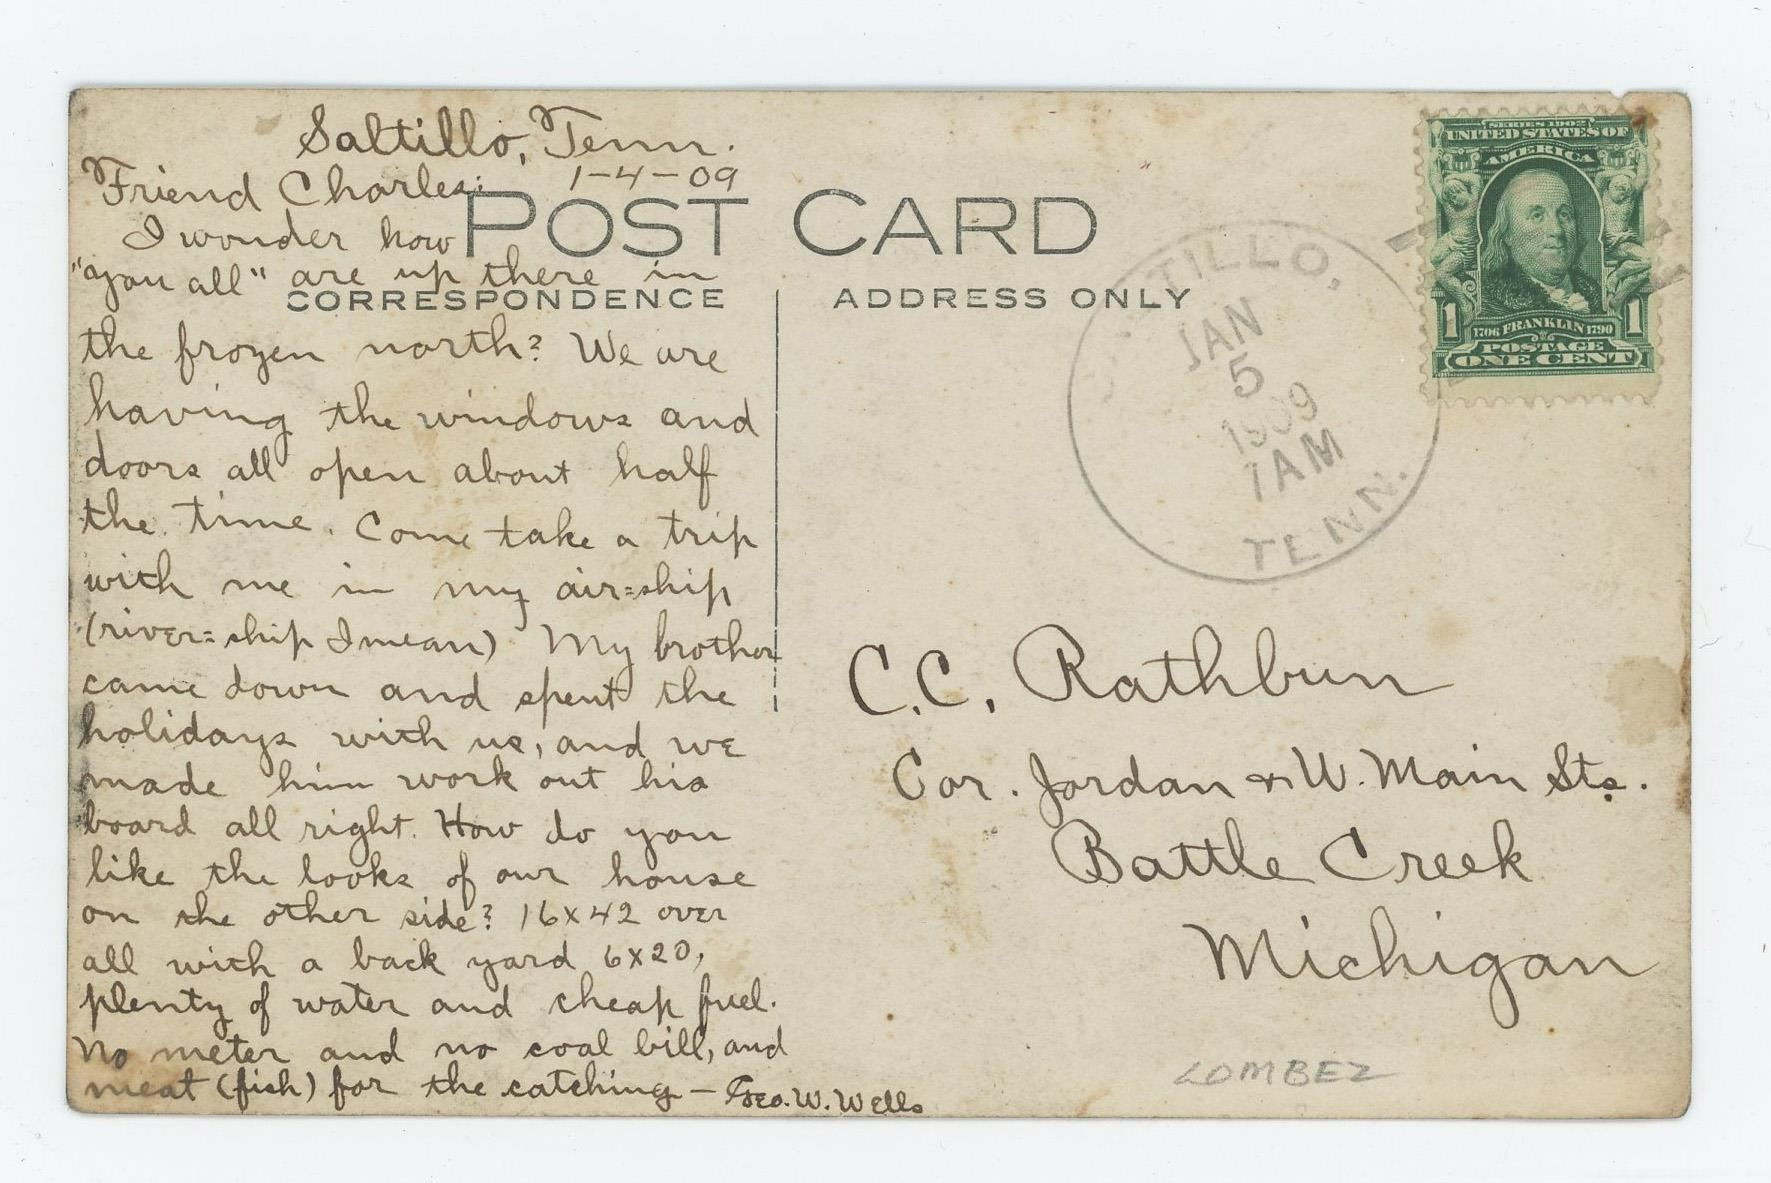 Saltillo, Tenn.
1-4-09
Friend Charles:
I wonder how
"you all" are up there in
the frozen north? We are
having the windows and
doors all open about half
the time. Come take a trip
with me in my air=ship
(river=ship I mean) My brother
came down and spent the
holidays with us, and we
made him work out his
board all right. How do you
like the looks of our house
on the other side? 16x42 over
all with a back yard 6x20,
plenty of water and cheap fuel.
No meter and no coal bill, and
meat (fish) for the catching - Geo. W. Wells
POST CARD
CORRESPONDENCE
ADDRESS ONLY
SALTILLO,
JAN
5
1909
1AM
TENN.
SERIES 1902
UNITED STATES OF
AMERICA
1 1
1706 FRANKLIN 1790
POSTAGE
ONE CENT
C.C. Rathbun
Cor. Jordan & W. Main Sts.
Battle Creek
Michigan
LOMBEZ